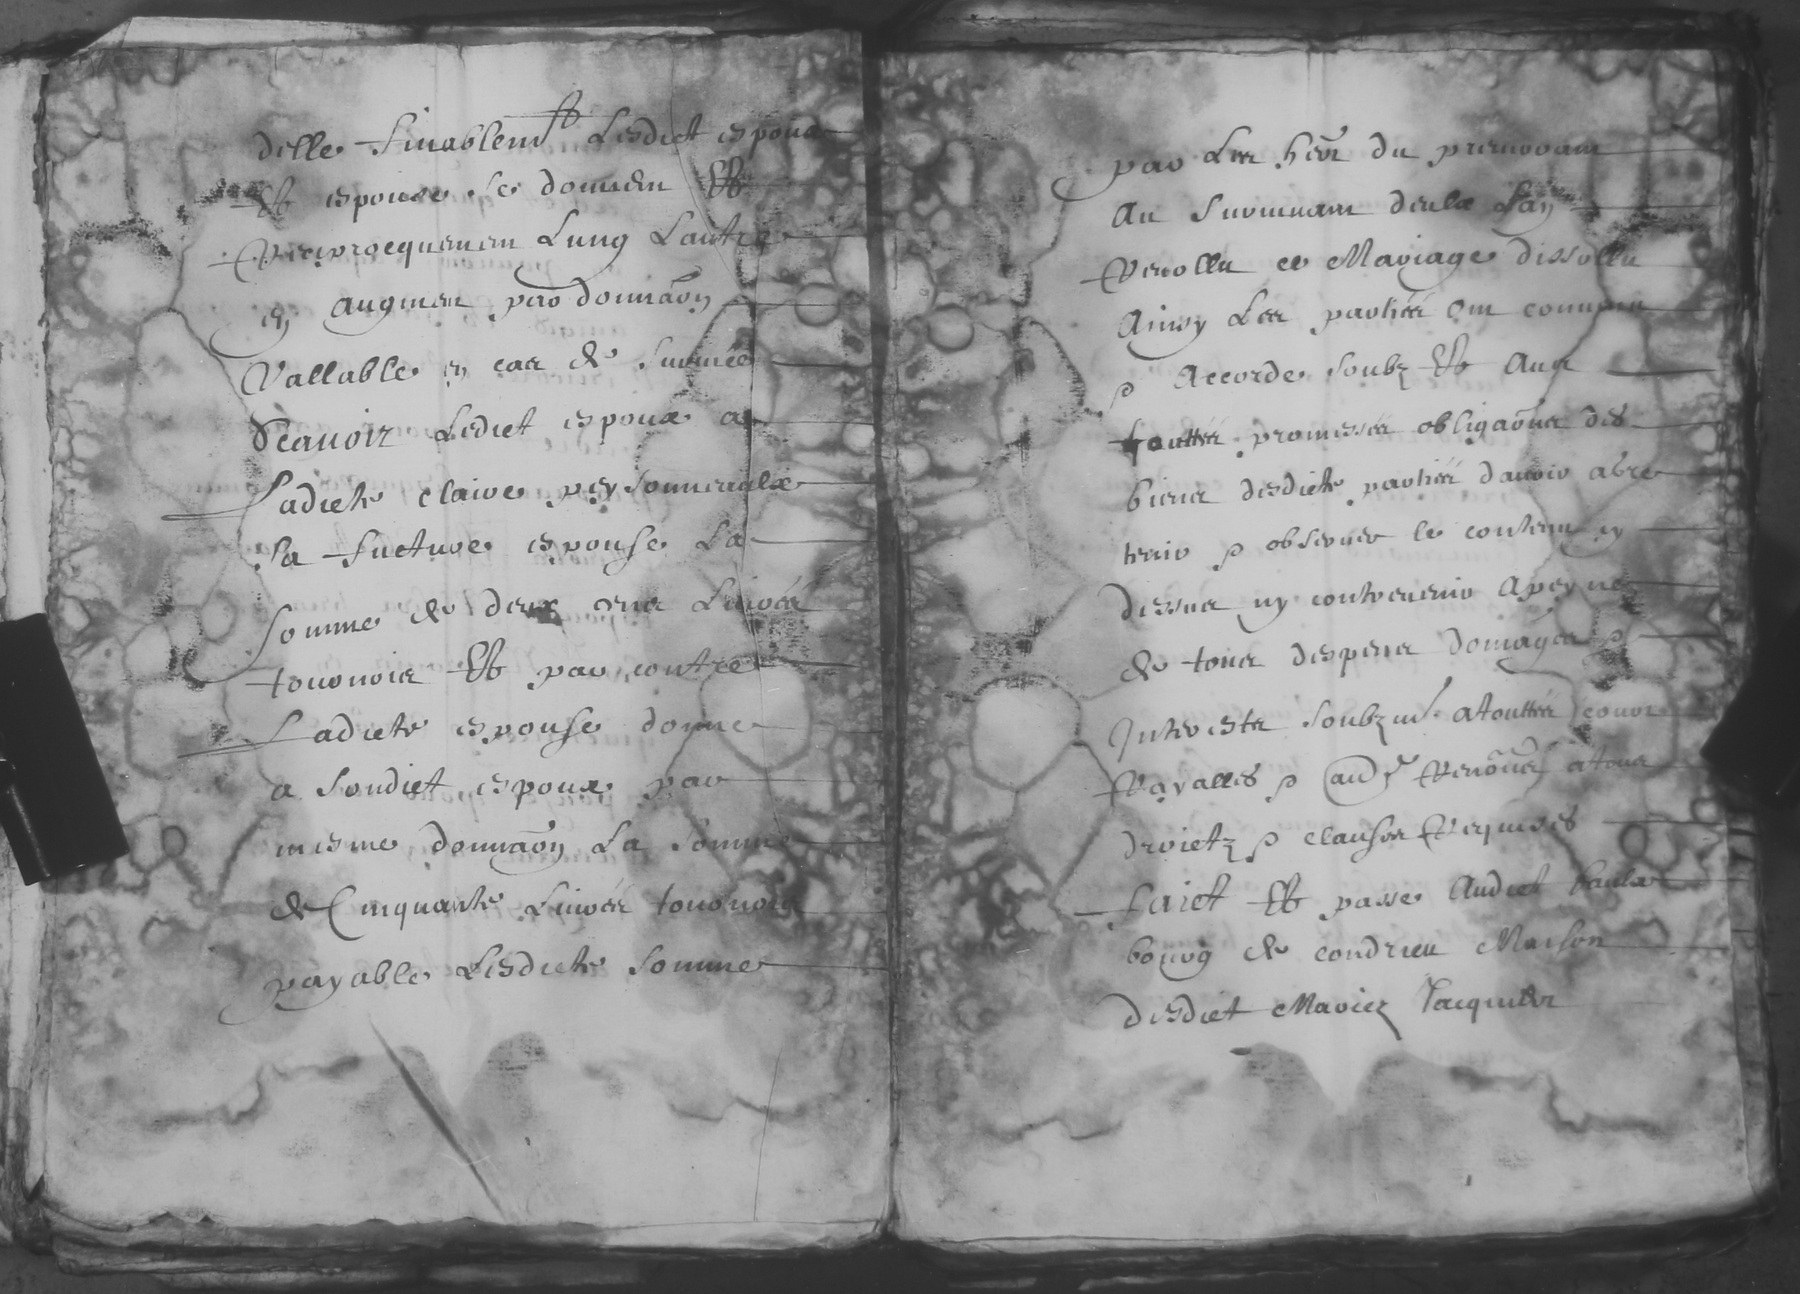 delle Finablemt Lesdict espoux
Et espouse se donnent Et
Reciprocquemen Lung Lautre
en augmen par donnaon
Vallable en cas de survie
Scavoir Ledict espoux a
Ladicte claire personneaulx
sa fucture espouse La
somme de deux cens Livres
tournois Et par contre
Ladicte espouse donne
a sondict espoux par
mesme donnaon La somme
de Cinquante Livres tournois
payable Lesdicte somme
par Les heoir du premourant
au survivant diceulx Lan
Revollu ce Mariage dissollu
Ainsy Les parties ont convenu
& accorde soubz Et avec
touttes promesses obligaons des
biens desdicte parties davoir agre
tenir & observer le contenu cy
dessus ny contrevenir a peyne
de tous despens domages &
Interestz soubzmis a touttes cours
Rayalles & Renons a tous
droictz & clauses Requises
Faict Et passe Audict
bourg de condrieu Maison
desdict Mariez Jacquier